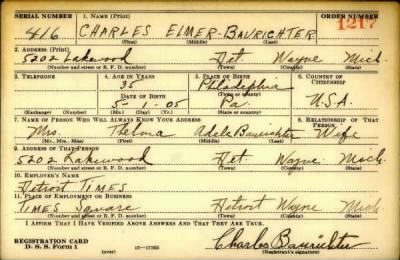 SERIAL NUMBER 1. NAME (Print) ORDER NUMBER
416 CHARLES ELMER BAURICHTER 1217
(First) (Middle) (Last)
2. ADDRESS (Print)
5202 Lakewood Det. Wayne Mich.
(Number and street or R. F. D. number) (Town) (County) (State)
3. TELEPHONE 4. AGE IN YEARS 5. PLACE OF BIRTH 6. COUNTRY OF CITIZENSHIP
35 Philadephia
DATE OF BIRTH (Town or county)
5-1-05 Pa. U.S.A.
(Exchange) (Number) (Mo.) (Day) (Yr.) (State or country)
7. NAME OF PERSON WHO WILL ALWAYS KNOW YOUR ADDRESS 8. RELATIONSHIP OF THAT PERSON
Mrs. Thelma Adele Baurichter Wife
(Mr., Mrs., Miss) (First) (Middle) (Last)
9. ADDRESS OF THAT PERSON
5202 Lakewood Det. Wayne Mich.
(Number and street or R. F. D. number) (Town) (County) (State)
10. EMPLOYER'S NAME
Detroit TIMES
11. PLACE OF EMPLOYMENT OR BUSINESS
TIMES Square Detroit Wayne Mich.
(Number and street or R. F. D. number) (Town) (County) (State)
I AFFIRM THAT I HAVE VERIFIED ABOVE ANSWERS AND THAT THEY ARE TRUE.
REGISTRATION CARD
D. S. S. Form 1 (over) Charles Baurichter
(Registrant's signature)